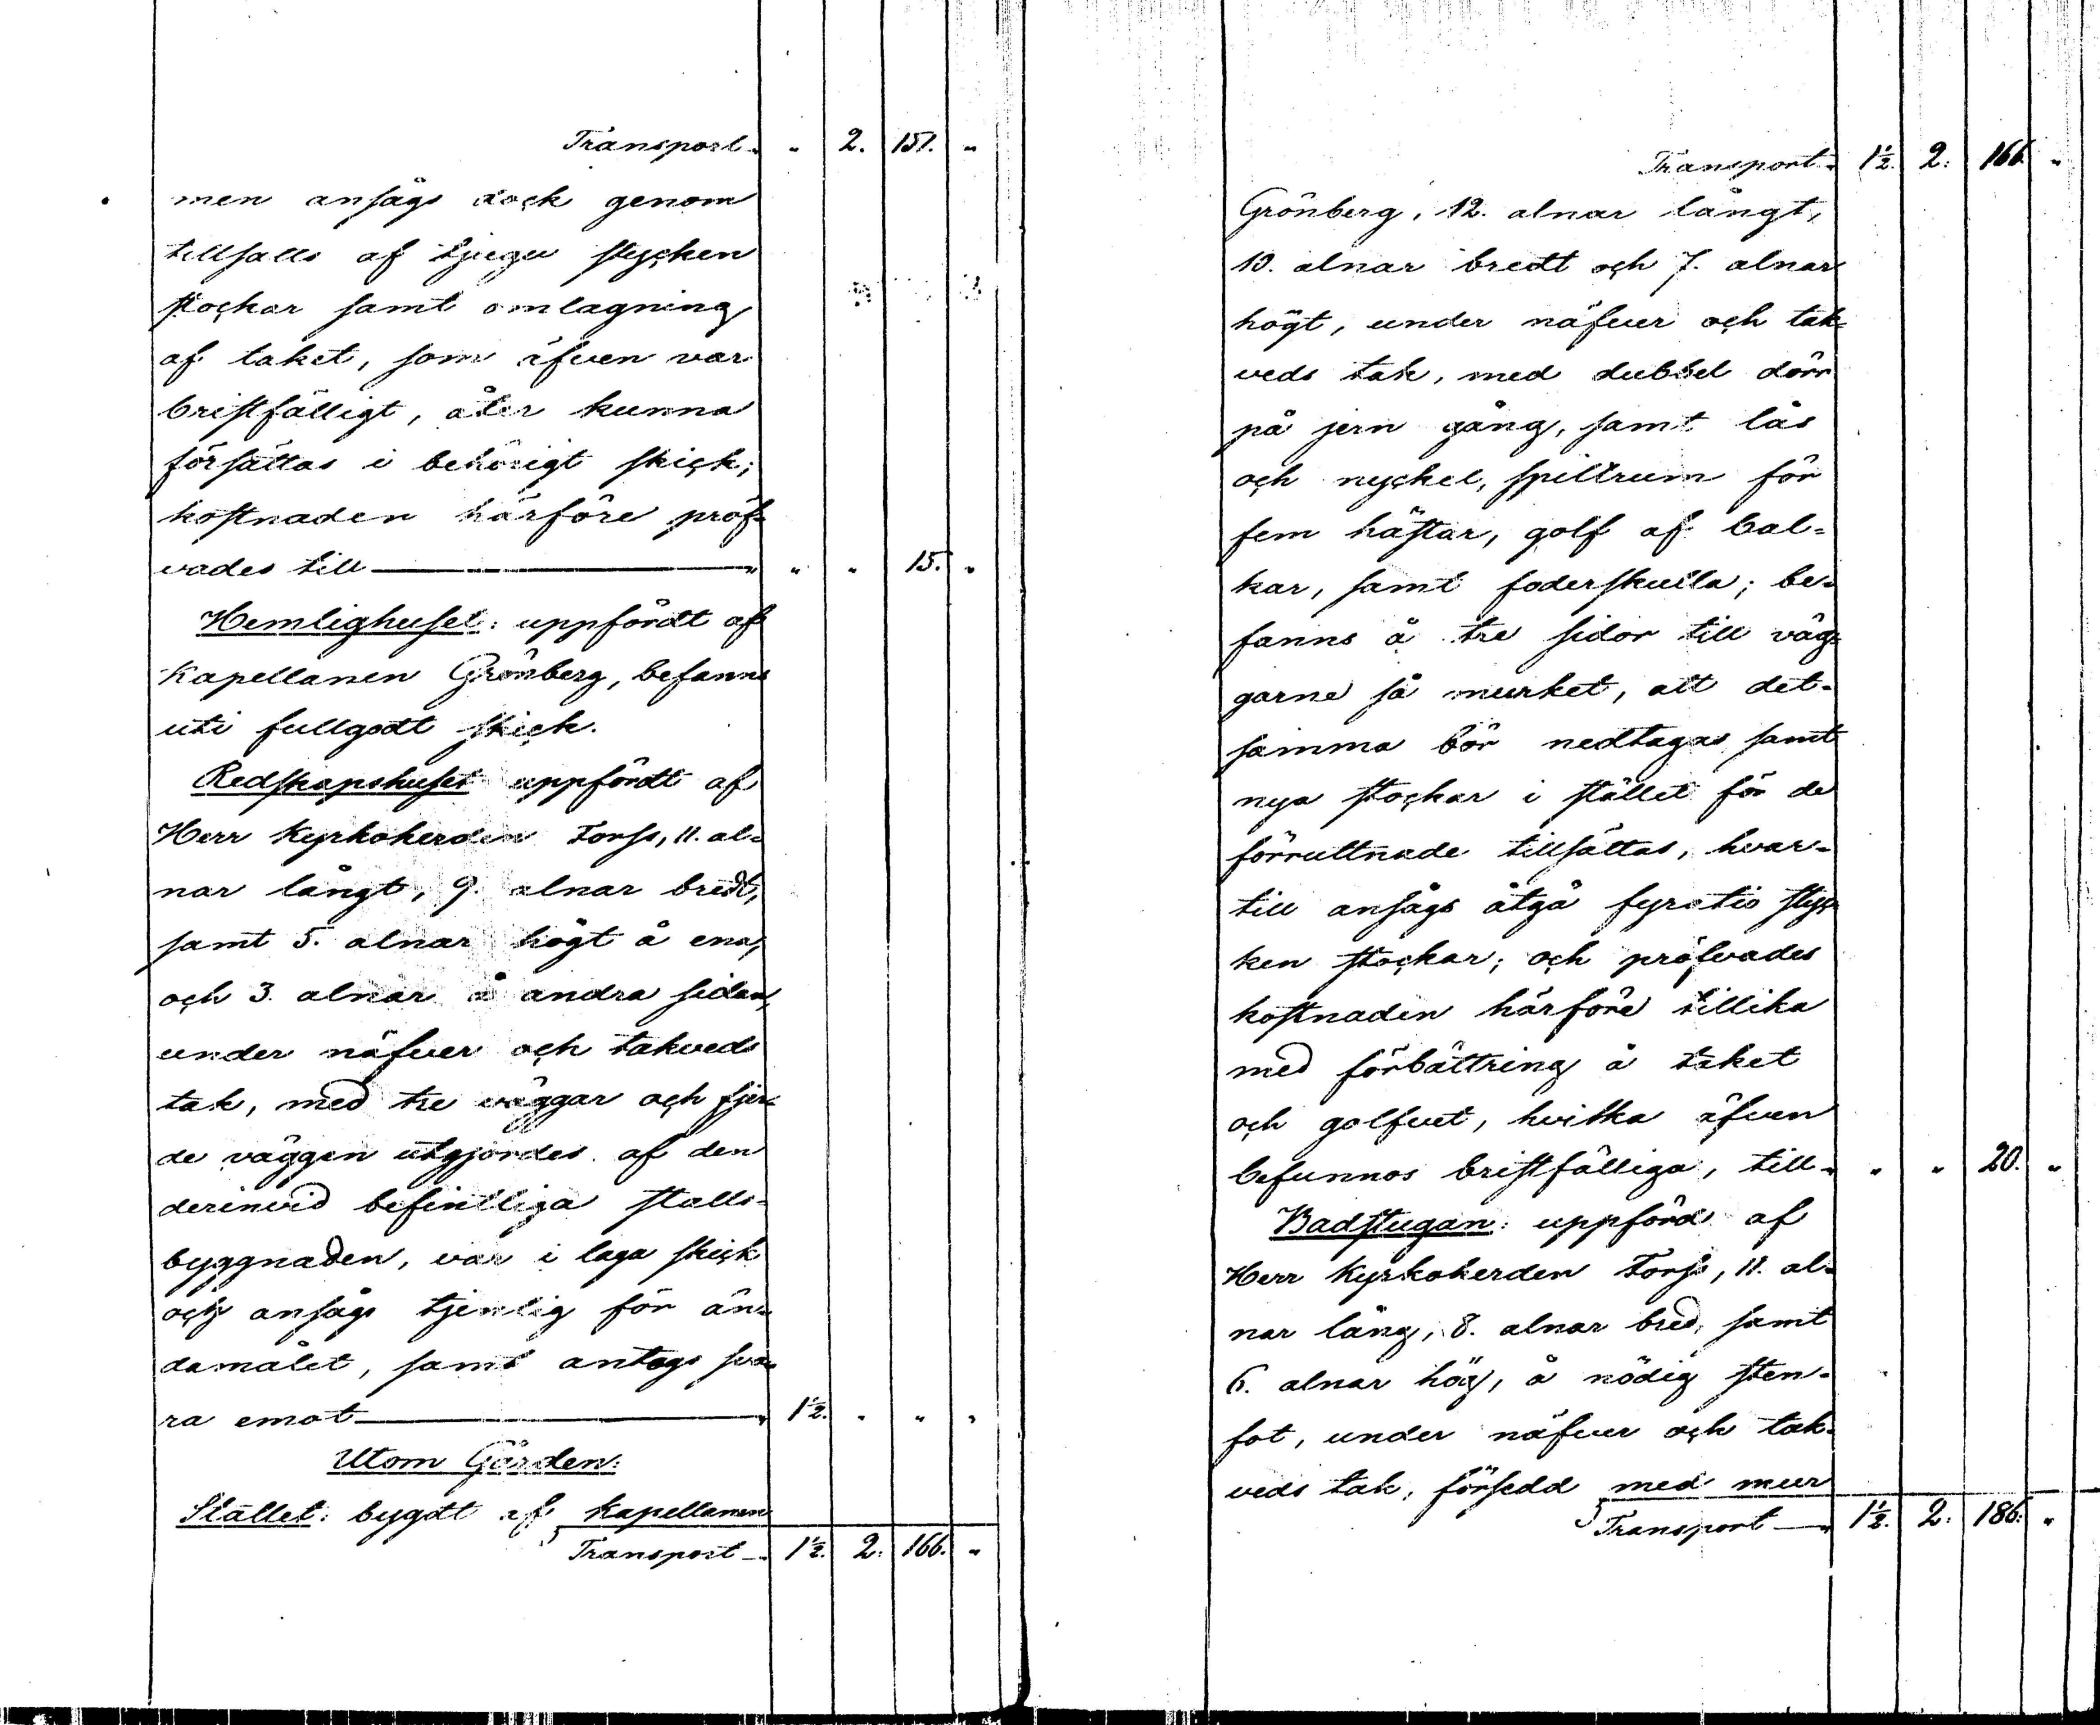 Transport " " 2. 151. "
men ansågs dock genom
tillsatts af tjugu stycken
stockar samt omlagning
af taket, som äfven var
bristfälligt, åter kunna
försättas i behörigt skick;
kostnaden härföre pröf-
vades till — " " " 15. "
Hemlighuset: uppfördt af
Kapellanen Grönberg, befanns
uti fullgodt skick.
Redskapshuset uppfördt af
Herr Kyrkoherden Forss, 11. al-
nar långt, 9. alnar bredt,
samt 5. alnar högt å ena,
och 3. alnar å andra sidan,
under näfver och takveds
tak, med tre väggar och fjer-
de väggen utgjordes af den
derinvid befintliga stalls-
byggnaden, var i laga skick
och ansågs tjenlig för än-
damålet, samt antogs sva-
ra emot — " 1½. " " "
Utom Gården:
Stallet: bygdt af Kapellanen
Transport — " 1½. 2. 166. "
Transport " 1½. 2. 166. "
Grönberg, 12. alnar långt,
10. alnar bredt och 7. alnar
högt, under näfver och tak-
veds tak, med dubbel dörr
på jern gång, samt lås
och nyckel, spiltrum för
fem hästar, golf af bal-
kar, samt foderskulla; be-
fanns å tre sidor till väg-
garne så murket, att det-
samma bör nedtagas samt
nya stockar i stället för de
förruttnade tillsättas, hvar-
till ansågs åtgå fyratio styc-
ken stockar; och pröfvades
kostnaden härföre tillika
med förbättring å taket
och golfvet, hvilka äfven
befunnos bristfälliga, till " " " 20. "
Badstugan: uppförd af
Herr Kyrkoherden Forss, 11. al-
nar lång, 8. alnar bred, samt
6. alnar hög, å nödig sten-
fot, under näfver och tak-
veds tak, försedd med mur
Transport — " 1½. 2. 186. "